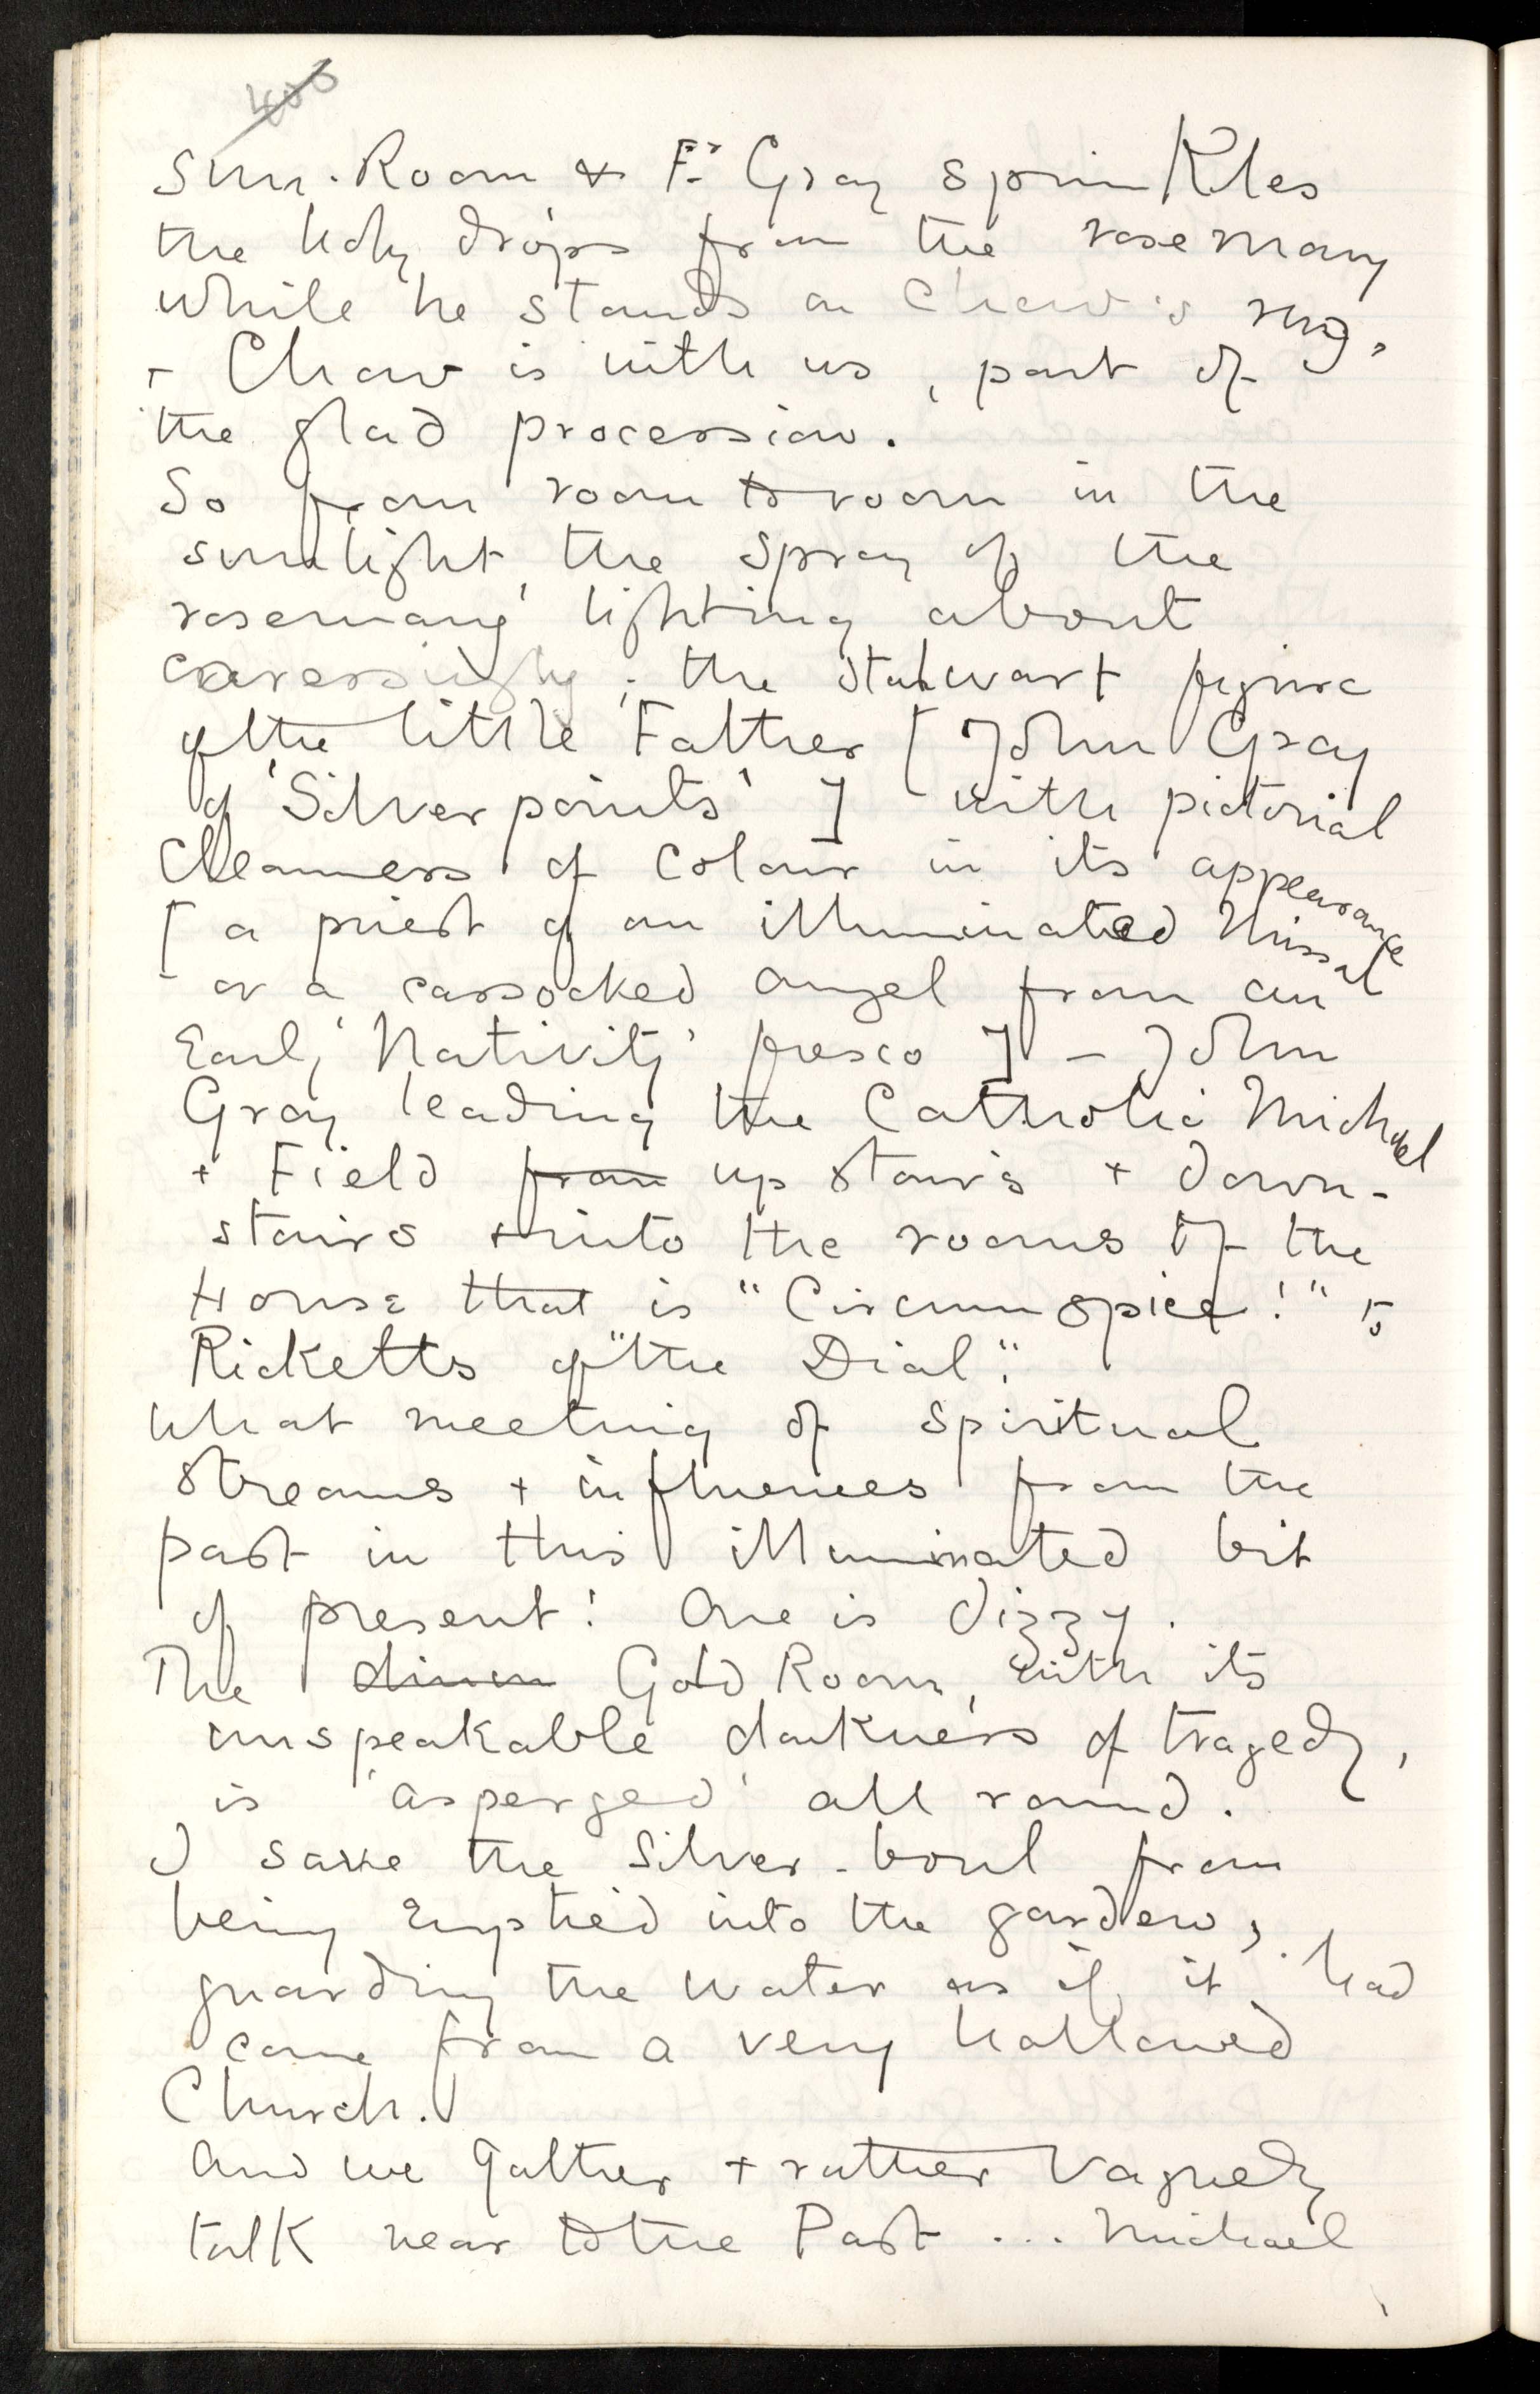 Sun-Room & Fr Gray sprinkles
the holy drops from the rosemary
while he stands on Chow's rug,
+ Chow is with us, part of
the glad procession.
So from room to room in the
sunlight, the spray of the
rosemary lighting about
caressingly; the stalwart figure
of the little Father [John Gray
of 'Silverpoints'] with pictorial
cleanness of colour in its appearance
[a priest of an illuminated Missal
or a cassocked angel from an
Early 'Nativity' fresco] – John
Gray leading the Catholic Michael
+ Field from up stairs + down-
stairs + into the rooms of the
House that is "Circumspice!" to
Ricketts of "the Dial".
What meeting of spiritual
streams + influences from the
past in this illuminated bit
of present! One is dizzy.
The Gold Room, with its
unspeakable darkness of tragedy,
is 'asperged' all round.
I save the silver-bowl from
being emptied into the garden,
guarding the water as if it had
come from a very hallowed
Church.
And we gather + rather vaguely
talk near to the Past ... Michael